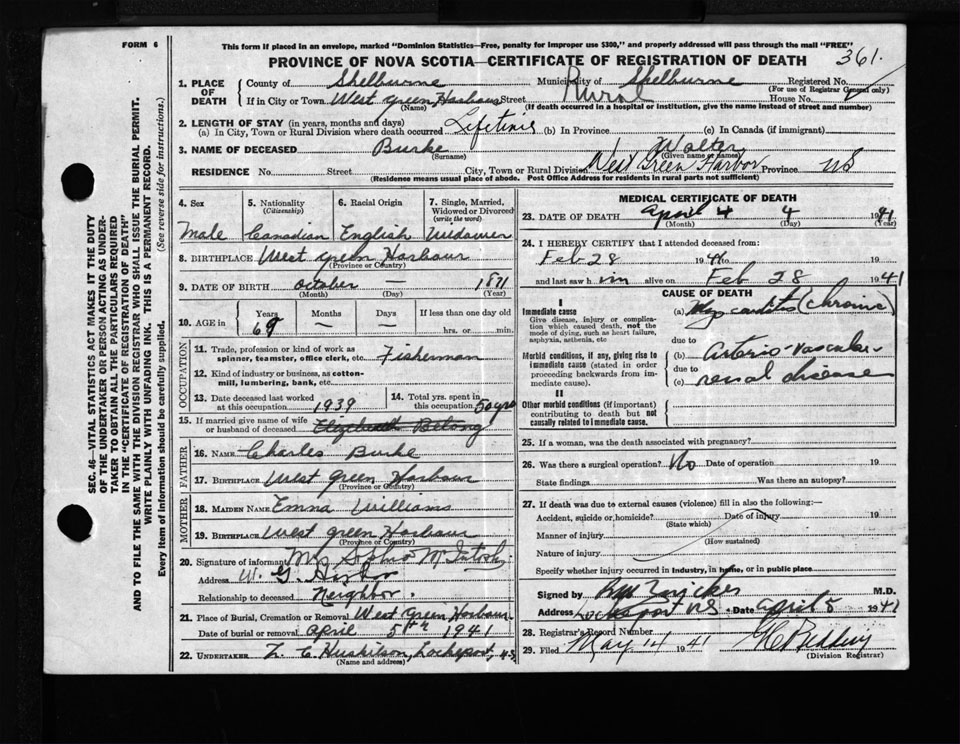 FORM 6
This form if placed in an envelope, marked "Dominion Statistics—Free, penalty for improper use $300," and properly addressed will pass through the mail "FREE"
PROVINCE OF NOVA SCOTIA—CERTIFICATE OF REGISTRATION OF DEATH 361.
1. PLACE OF DEATH
County of Shelburne Municipality of Shelburne Registered No.
(For use of Registrar General only)
If in City or Town West Green Harbour Street Rural House No.
(Name) (If death occurred in a hospital or institution, give the name instead of street and number)
2. LENGTH OF STAY (in years, months and days)
(a) In City, Town or Rural Division where death occurred Lifetime (b) In Province (c) In Canada (if immigrant)
3. NAME OF DECEASED Burke Walter
(Surname) (Given name or names)
RESIDENCE No. Street City, Town or Rural Division West Green Harbor Province NS
(Residence means usual place of abode. Post Office Address for residents in rural parts not sufficient)
4. Sex Male
5. Nationality (Citizenship) Canadian
6. Racial Origin English
7. Single, Married, Widowed or Divorced (write the word) Widower
8. BIRTHPLACE West Green Harbour
(Province or Country)
9. DATE OF BIRTH October — 1871
(Month) (Day) (Year)
10. AGE in Years Months Days If less than one day old
69 — — hrs. or min.
OCCUPATION
11. Trade, profession or kind of work as spinner, teamster, office clerk, etc. Fisherman
12. Kind of industry or business, as cotton-mill, lumbering, bank, etc.
13. Date deceased last worked at this occupation 1939
14. Total yrs. spent in this occupation 50 yrs
15. If married give name of wife or husband of deceased Elizabeth Belong
FATHER
16. NAME Charles Burke
17. BIRTHPLACE West Green Harbour
(Province or Country)
MOTHER
18. MAIDEN NAME Emma Williams
19. BIRTHPLACE West Green Harbour
(Province or Country)
20. Signature of informant Mrs Sophia McIntosh
Address W. G. Harbor
Relationship to deceased Neighbor.
21. Place of Burial, Cremation or Removal West Green Harbour
Date of burial or removal April 5th 1941
22. UNDERTAKER L. C. Huskilson, Lockeport, N.S.
(Name and address)
MEDICAL CERTIFICATE OF DEATH
23. DATE OF DEATH April 4 4 1941
(Month) (Day) (Year)
24. I HEREBY CERTIFY that I attended deceased from:
Feb 28 19 to 19
and last saw him alive on Feb 28 1941
CAUSE OF DEATH
I
Immediate cause
Give disease, injury or complication which caused death, not the mode of dying, such as heart failure, asphyxia, asthenia, etc
(a) Myocarditis (chronic)
due to
Morbid conditions, if any, giving rise to immediate cause (stated in order proceeding backwards from immediate cause).
(b) Arterio-vascular-
due to
(c) renal disease
II
Other morbid conditions (if important) contributing to death but not causally related to immediate cause.
25. If a woman, was the death associated with pregnancy?
26. Was there a surgical operation? No Date of operation 19
State findings Was there an autopsy?
27. If death was due to external causes (violence) fill in also the following:—
Accident, suicide or homicide? Date of injury 19
(State which)
Manner of injury
(How sustained)
Nature of injury
Specify whether injury occurred in industry, in home, or in public place
Signed by M.D.
Address Lockeport NS Date April 5 1941
28. Registrar's Record Number
29. Filed May 14 1941
(Division Registrar)
SEC. 46—VITAL STATISTICS ACT MAKES IT THE DUTY
OF THE UNDERTAKER OR PERSON ACTING AS UNDER-
TAKER TO OBTAIN ALL THE PARTICULARS REQUIRED
IN THE "CERTIFICATE OF REGISTRATION OF DEATH"
AND TO FILE THE SAME WITH THE DIVISION REGISTRAR WHO SHALL ISSUE THE BURIAL PERMIT.
WRITE PLAINLY WITH UNFADING INK. THIS IS A PERMANENT RECORD.
Every item of information should be carefully supplied. (See reverse side for instructions.)